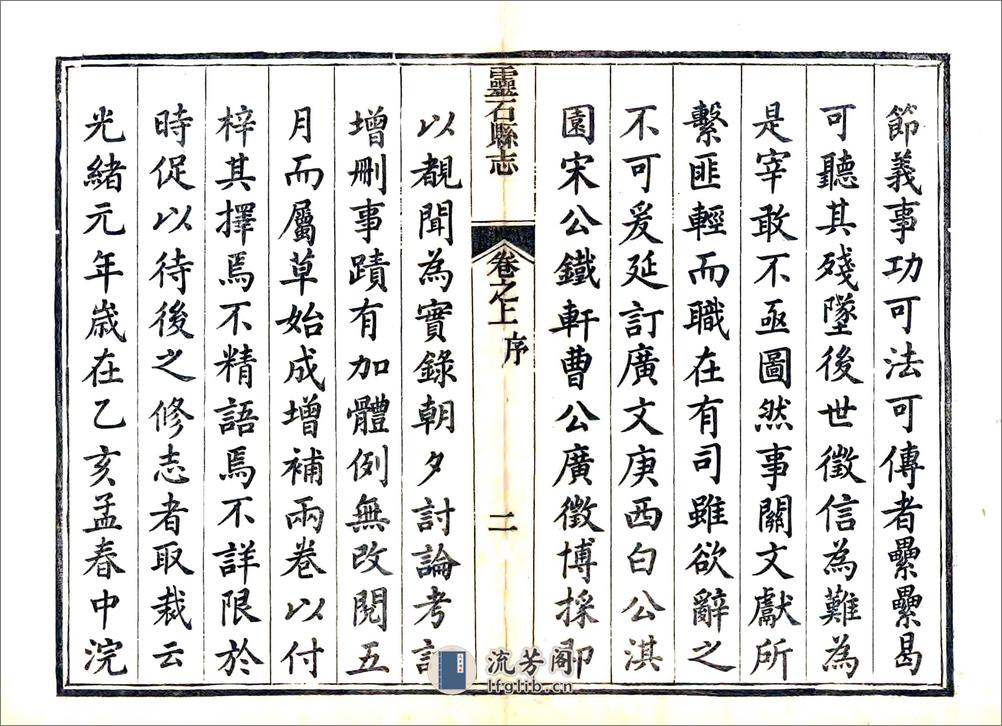 節義事功可法可傳者纍纍曷
可聽其殘墜後世徵信為難為
是宰敢不亟圖然事關文獻所
繫匪輕而職在有司雖欲辭之
不可爰延訂廣文庚西白公淇
園宋公鐵軒曹公廣徵博採即
靈石縣志
卷之上
序
二
以覩聞為實錄朝夕討論考訂
增刪事蹟有加體例無改閱五
月而屬草始成增補兩卷以付
梓其擇焉不精語焉不詳限於
時促以待後之修志者取裁云
光緒元年歲在乙亥孟春中浣
流芳閣
lfglib.cn